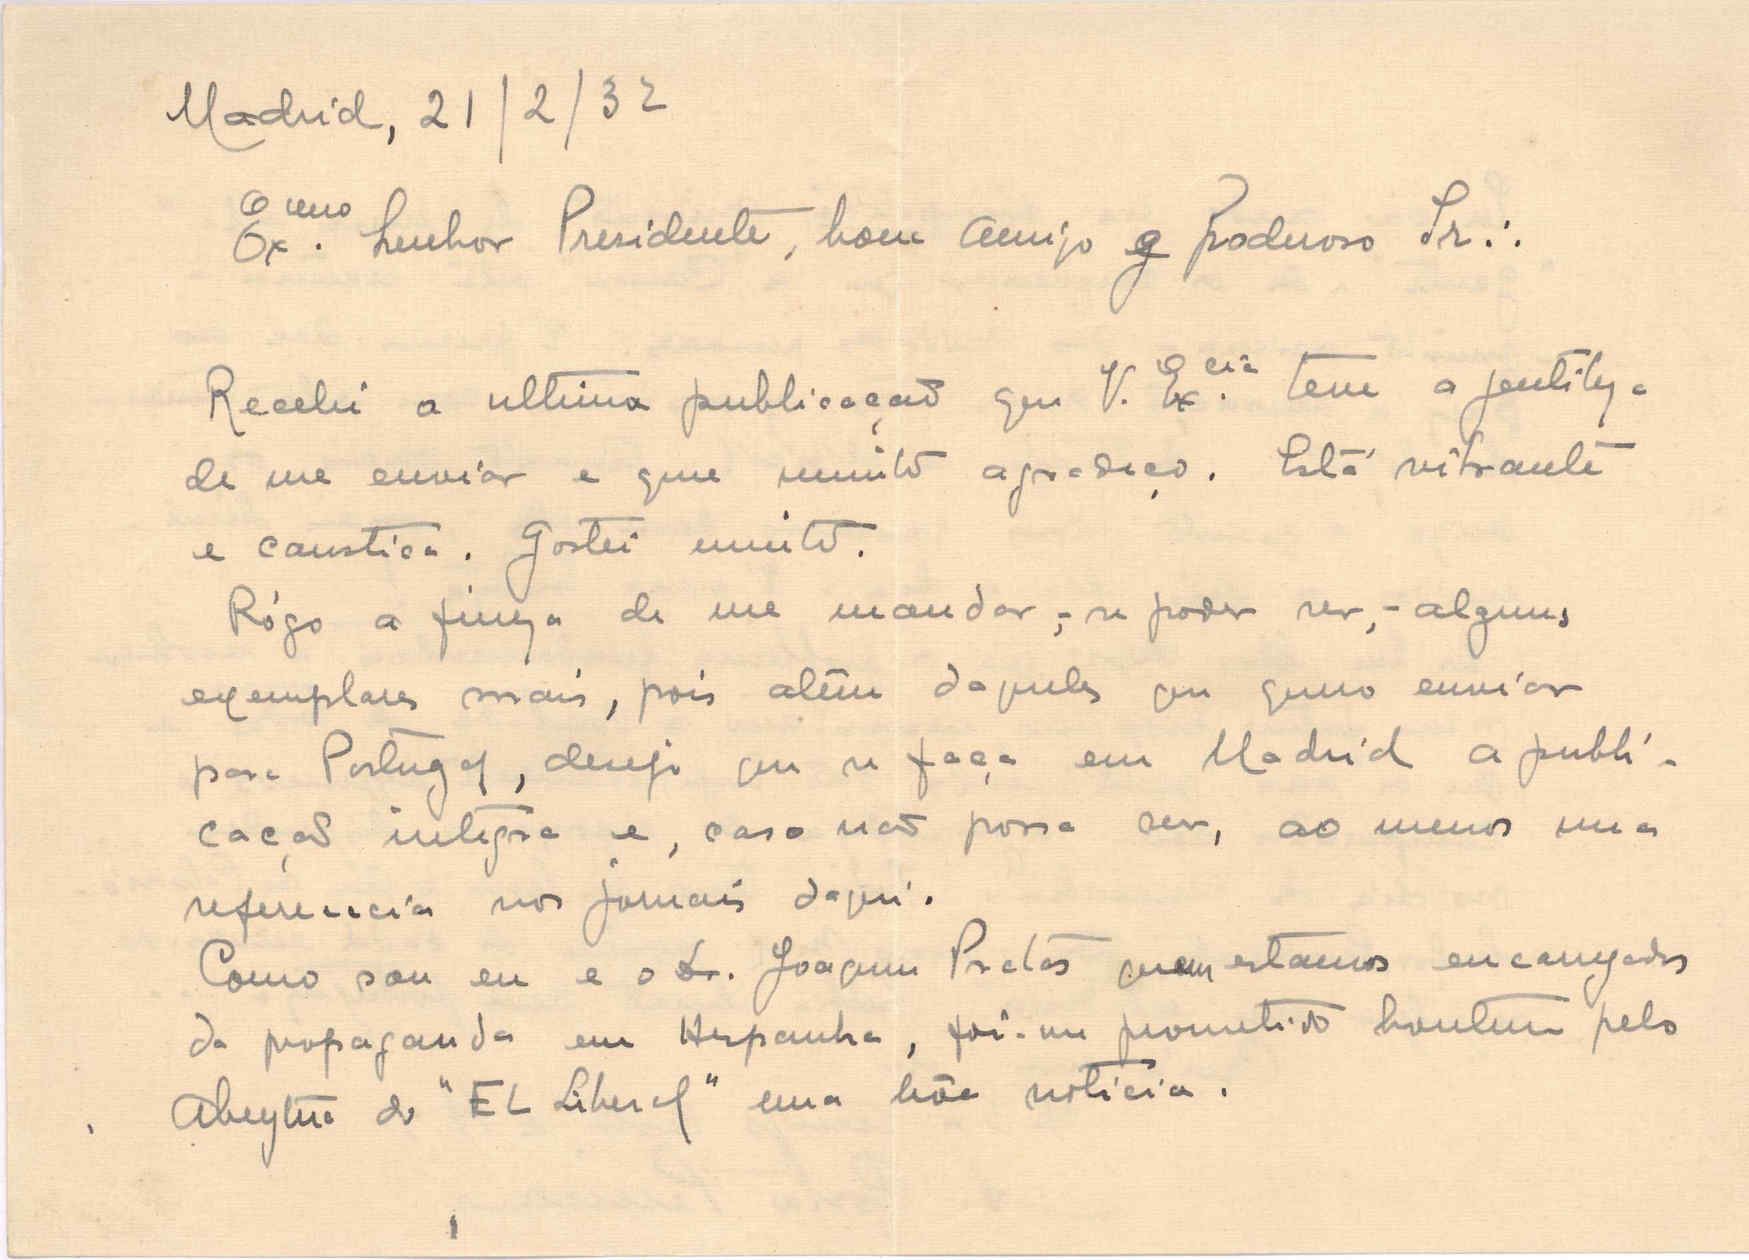 Madrid, 21/2/32
Ex.mo Senhor Presidente, bom amigo e poderoso Ir∴
Recebi a ultima publicação que V. Ex.cia teve a gentileza
de me enviar e que muito agradeço. Está vibrante
e caustica. Gostei muito.
Rógo a fineza de me mandar,- se poder ser,- alguns
exemplares mais, pois além daqueles que quero enviar
para Portugal, desejo que se faça em Madrid a publi-
cação integra e, caso não possa ser, ao menos uma
referencia nos jornais daqui.
Como sou eu e o Dr. Joaquim Pratas quem estamos encarregados
da propaganda em Hespanha, foi-me prometido hontem pelo
do "EL Liberal" uma bôa noticia.